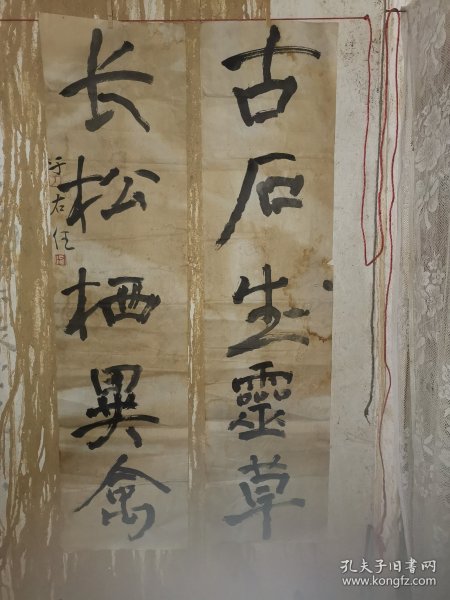 古石生靈草
长松栖異禽
于右任
孔夫子旧书网
www.kongfz.com